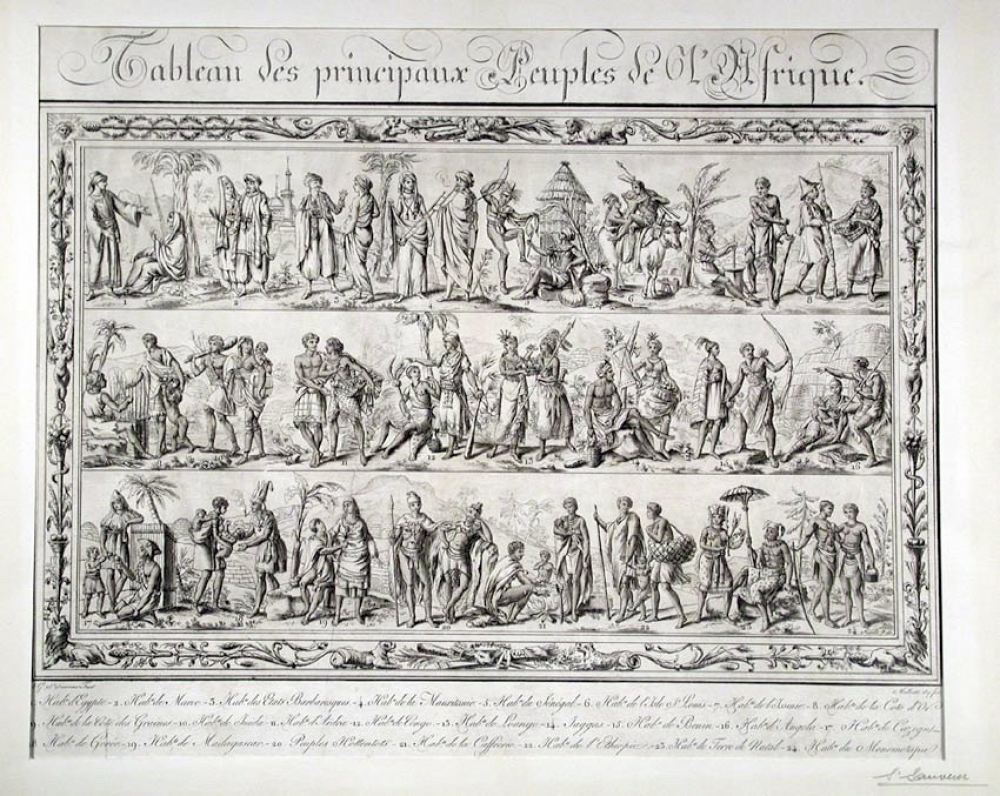 Tableau des principaux Peuples de l'Afrique.
1 2 3 4 5 6 7 8
9 10 11 12 13 14 15 16
17 18 19 20 21 22 23 24
Hab. d'Egypte - 2. Hab. de Maroc - 3. Hab. des Etats Barbaresques - 4. Hab. de la Mauritanie - 5. Hab. du Sénégal - 6. Hab. de l'Isle St. Louis - 7. Hab. de - 8. Hab. de la Cote d'Or
9. Hab. de la Côte des Graines - 10. Hab. de Juida - 11. Hab. d'Ardra - 12. Hab. de Congo - 13. Hab. de Loango - 14. Jagges - 15. Hab. de Benin - 16. Hab. d'Angola - 17. Hab. de
18. Hab. de Gorée - 19. Hab. de Madagascar - 20. Peuples Hottentots - 21. Hab. de la Caffrerie - 22. Hab. de l'Ethiopie - 23. Hab. de Terre de Natal - 24. Hab. du Monomotapa
St Sauveur